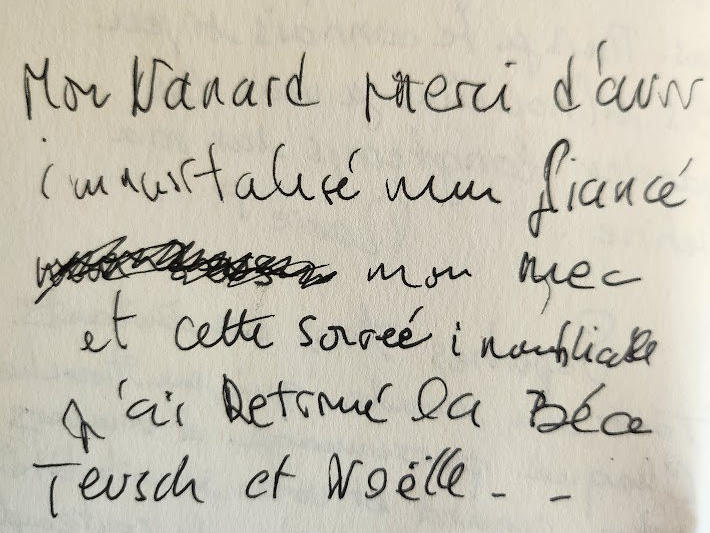 Mon Nanard merci d'avoir
immortalisé mon fiancé
mon mec
et cette soirée inoubliable
J'ai Retrouvé la Béca
Teusch et Noëlle - -